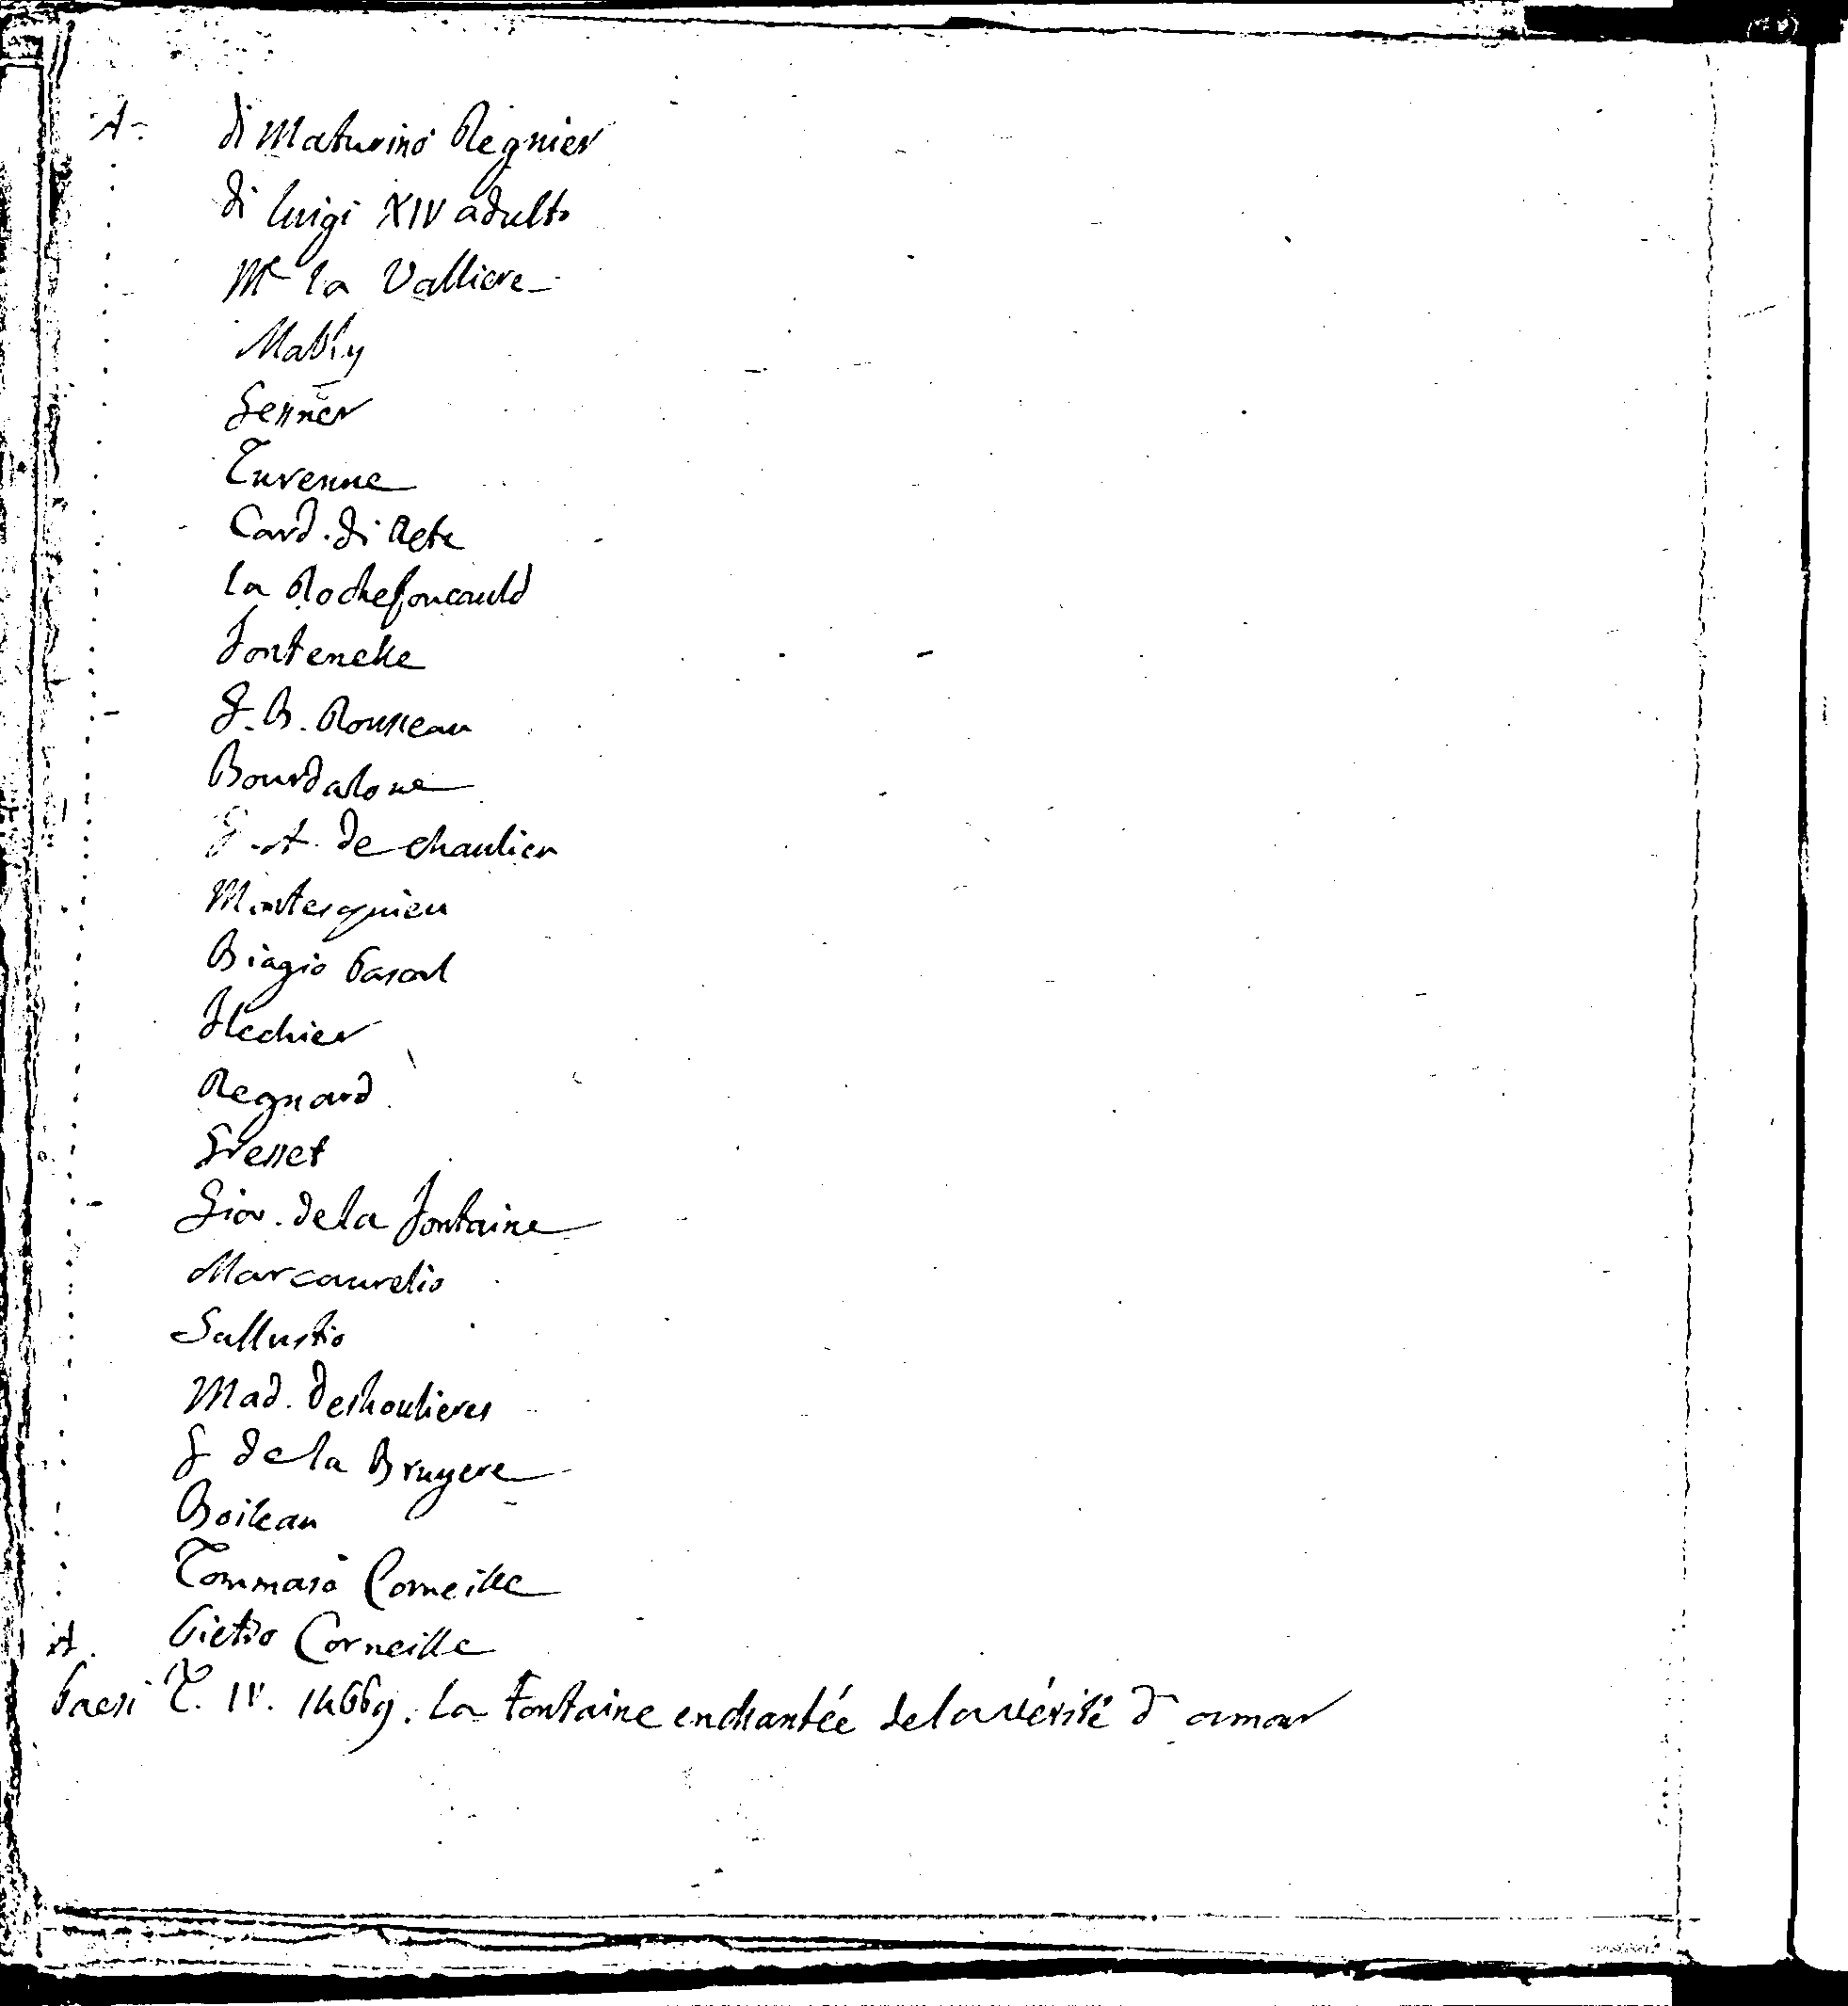 A. di Maturino Regnier
di Luigi XIV adulto
Me la Valliere
Mably
Gesner
Turenne
Card. di Retz
la Rochefoucauld
Fontenelle
G. B. Rousseau
Bourdaloue
G. A. de Chaulieu
Montesquieu
Biagio Pascal
Flechier
Regnard
Gresset
Giov. de la Fontaine
Marcaurelio
Sallustio
Mad. Deshoulieres
G de la Bruyere
Boileau
Tommaso Corneille
A. Pietro Corneille
Paesi T. IV. La Fontaine enchantée de la vérité d'amour